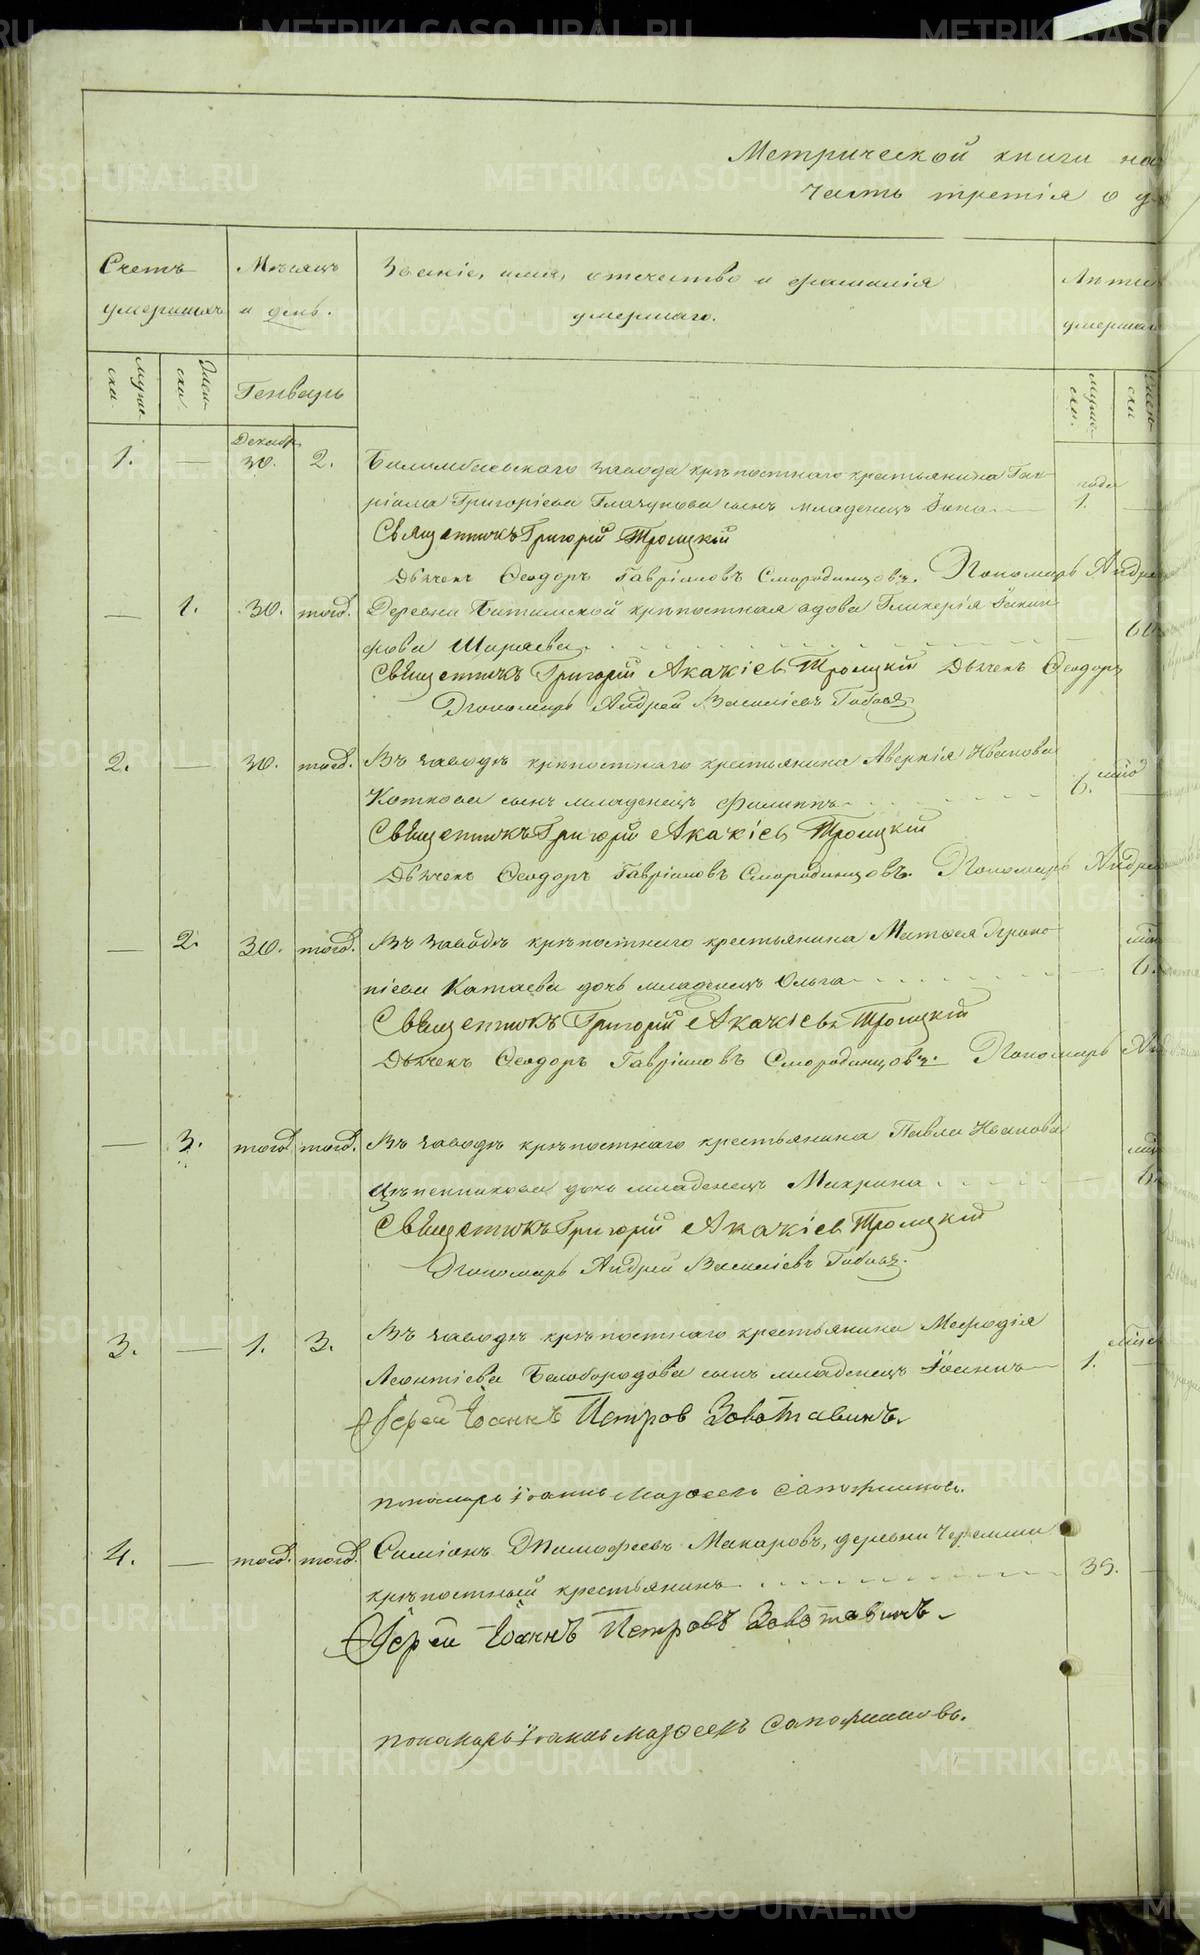 METRIKI.GASO-URAL.RU
Метрической книги на
Часть третія о у
Счетъ умершихъ
Мѣсяцъ и день.
Званіе, имя, отечество и фамилія
умершаго.
Лѣта
умершаго
муже-
ски.
Жен-
ски.
Генварь
муже-
ски.
Жен-
ски
Декабр.
1. — 30. 2. Билимбаевскаго завода крѣпостнаго крестьянина Гав-
года
ріила Григоріева Глачунова сынъ младенецъ Іона 1.
Священникъ Григорій Троицкій
Дьячекъ Ѳеодоръ Гавріиловъ Смородинцовъ. Пономарь Андре
— 1. 30. тогд. Деревни Битимской крѣпостная вдова Гликерія Іакин-
фова Ширяева 60
Священникъ Григорій Акакіевъ Троицкій Дьячекъ Ѳеодоръ
Пономарь Андрей Василіевъ
2. — 30. тогд. Въ заводѣ крѣпостнаго крестьянина Аверкія Иванова
Коткова сынъ младенецъ Филиппъ 6.
Священникъ Григорій Акакіевъ Троицкій
Дьячекъ Ѳеодоръ Гавріиловъ Смородинцовъ. Пономарь Андре
— 2. 30. тогд. Въ заводѣ крѣпостнаго крестьянина Матѳея Проко-
піева Катаева дочь младенецъ Ольга 6.
Священникъ Григорій Акакіевъ Троицкій
Дьячекъ Ѳеодоръ Гавріиловъ Смородинцовъ. Пономарь Анд
— 3. тогд. тогд. Въ заводѣ крѣпостнаго крестьянина Павла Иванова
Цѣпенникова дочь младенецъ Макрина 6.
Священникъ Григорій Акакіевъ Троицкій
Пономарь Андрей Василіевъ
3. — 1. 3. Въ заводѣ крѣпостнаго крестьянина Меѳодія
Леонтіева Белобородова сынъ младенецъ Іоаннъ 1.
Іерей Іоаннъ Петров Золотавинъ.
пономарь Іоаннъ Сапожниковъ.
4. — тогд. тогд. Симіонъ Тимофеевъ Макаровъ, деревни Черемши
крѣпостный крестьянинъ 39.
Іерей Іоаннъ Петровъ Золотавинъ
пономарь Іоаннъ Сапожниковъ.